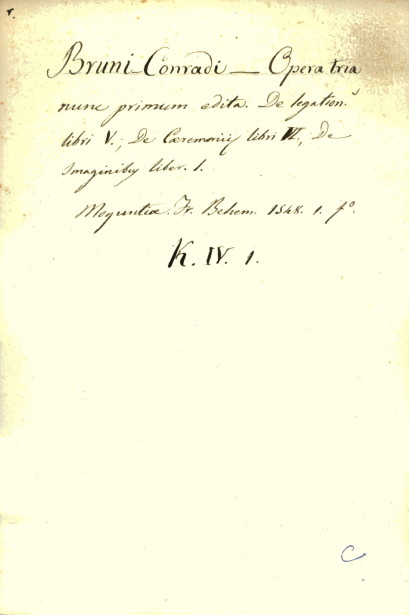 r.
Bruni Conradi — Opera tria
nunc primum edita. De legation.
libri V.; De Cæremoniis libri VI., De
Imaginibus liber. 1.
Moguntiæ. Fr. Behem. 1548. 1. fo.
K. IV. 1.
C